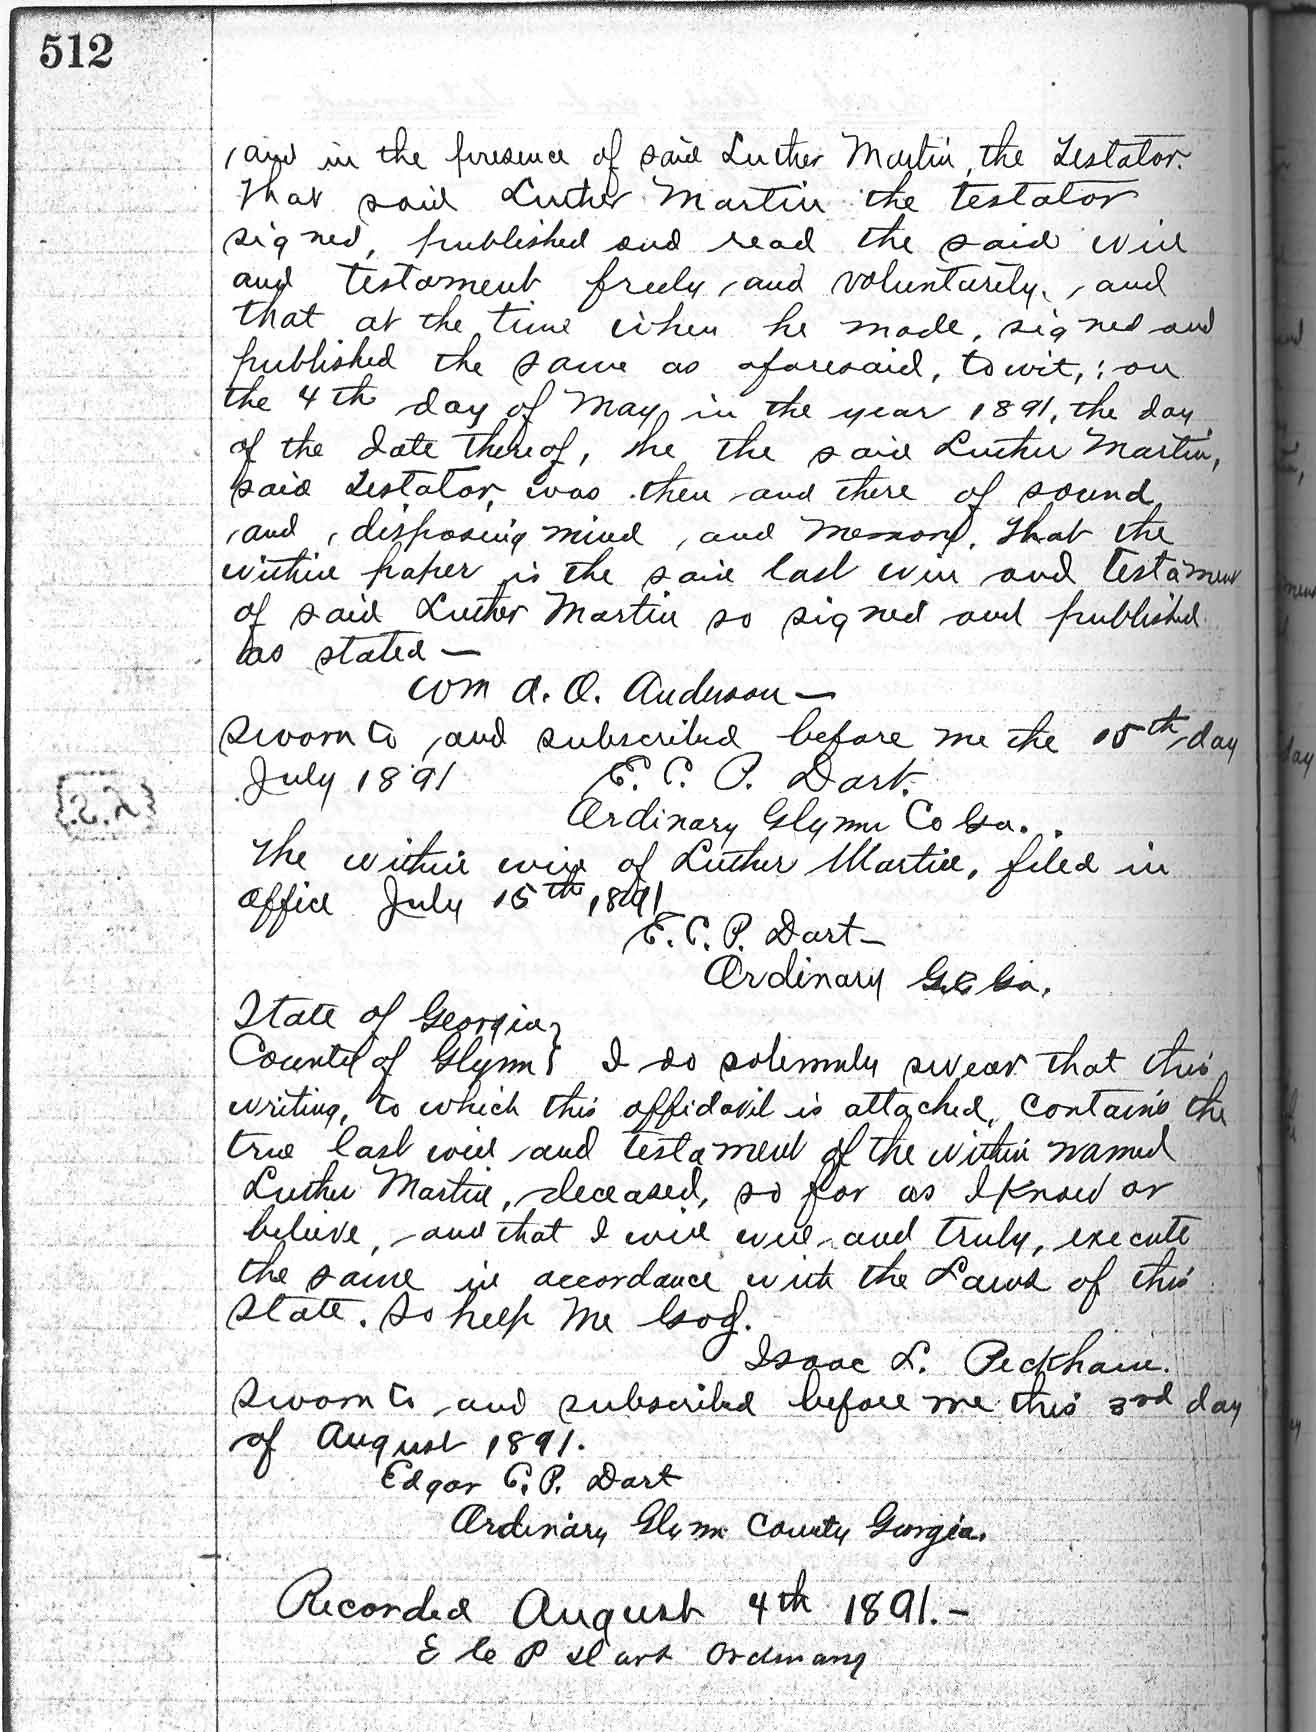 512
and in the presence of said Luther Martin, the Testator.
That said Luther Martin the testator
signed, published and read the said will
and testament freely and voluntarily, and
that at the time when he made, signed and
published the same as aforesaid, to wit, : on
the 4th day of May in the year 1891, the day
of the date thereof, he the said Luther Martin,
said Testator, was then and there of sound
and disposing mind and memory. That the
within paper is the said last will and testament
of said Luther Martin so signed and published
as stated —
Wm A. O. Anderson —
Sworn to and subscribed before me the 15th day
July 1891 E. C. P. Dart.
Ordinary Glynn Co Ga.
L.S.
The within will of Luther Martin, filed in
office July 15th, 1891
E. C. P. Dart —
Ordinary G.C. Ga.
State of Georgia }
County of Glynn } I do solemnly swear that this
writing, to which this affidavit is attached, contains the
true last will and testament of the within named
Luther Martin, deceased, so far as I know or
believe, and that I will well and truly, execute
the same in accordance with the Laws of this
State. So help Me God.
Isaac L. Peckham.
Sworn to and subscribed before me this 3rd day
of August 1891.
Edgar C. P. Dart
Ordinary Glynn County Georgia.
Recorded August 4th 1891. —
E C P Dart Ordinary